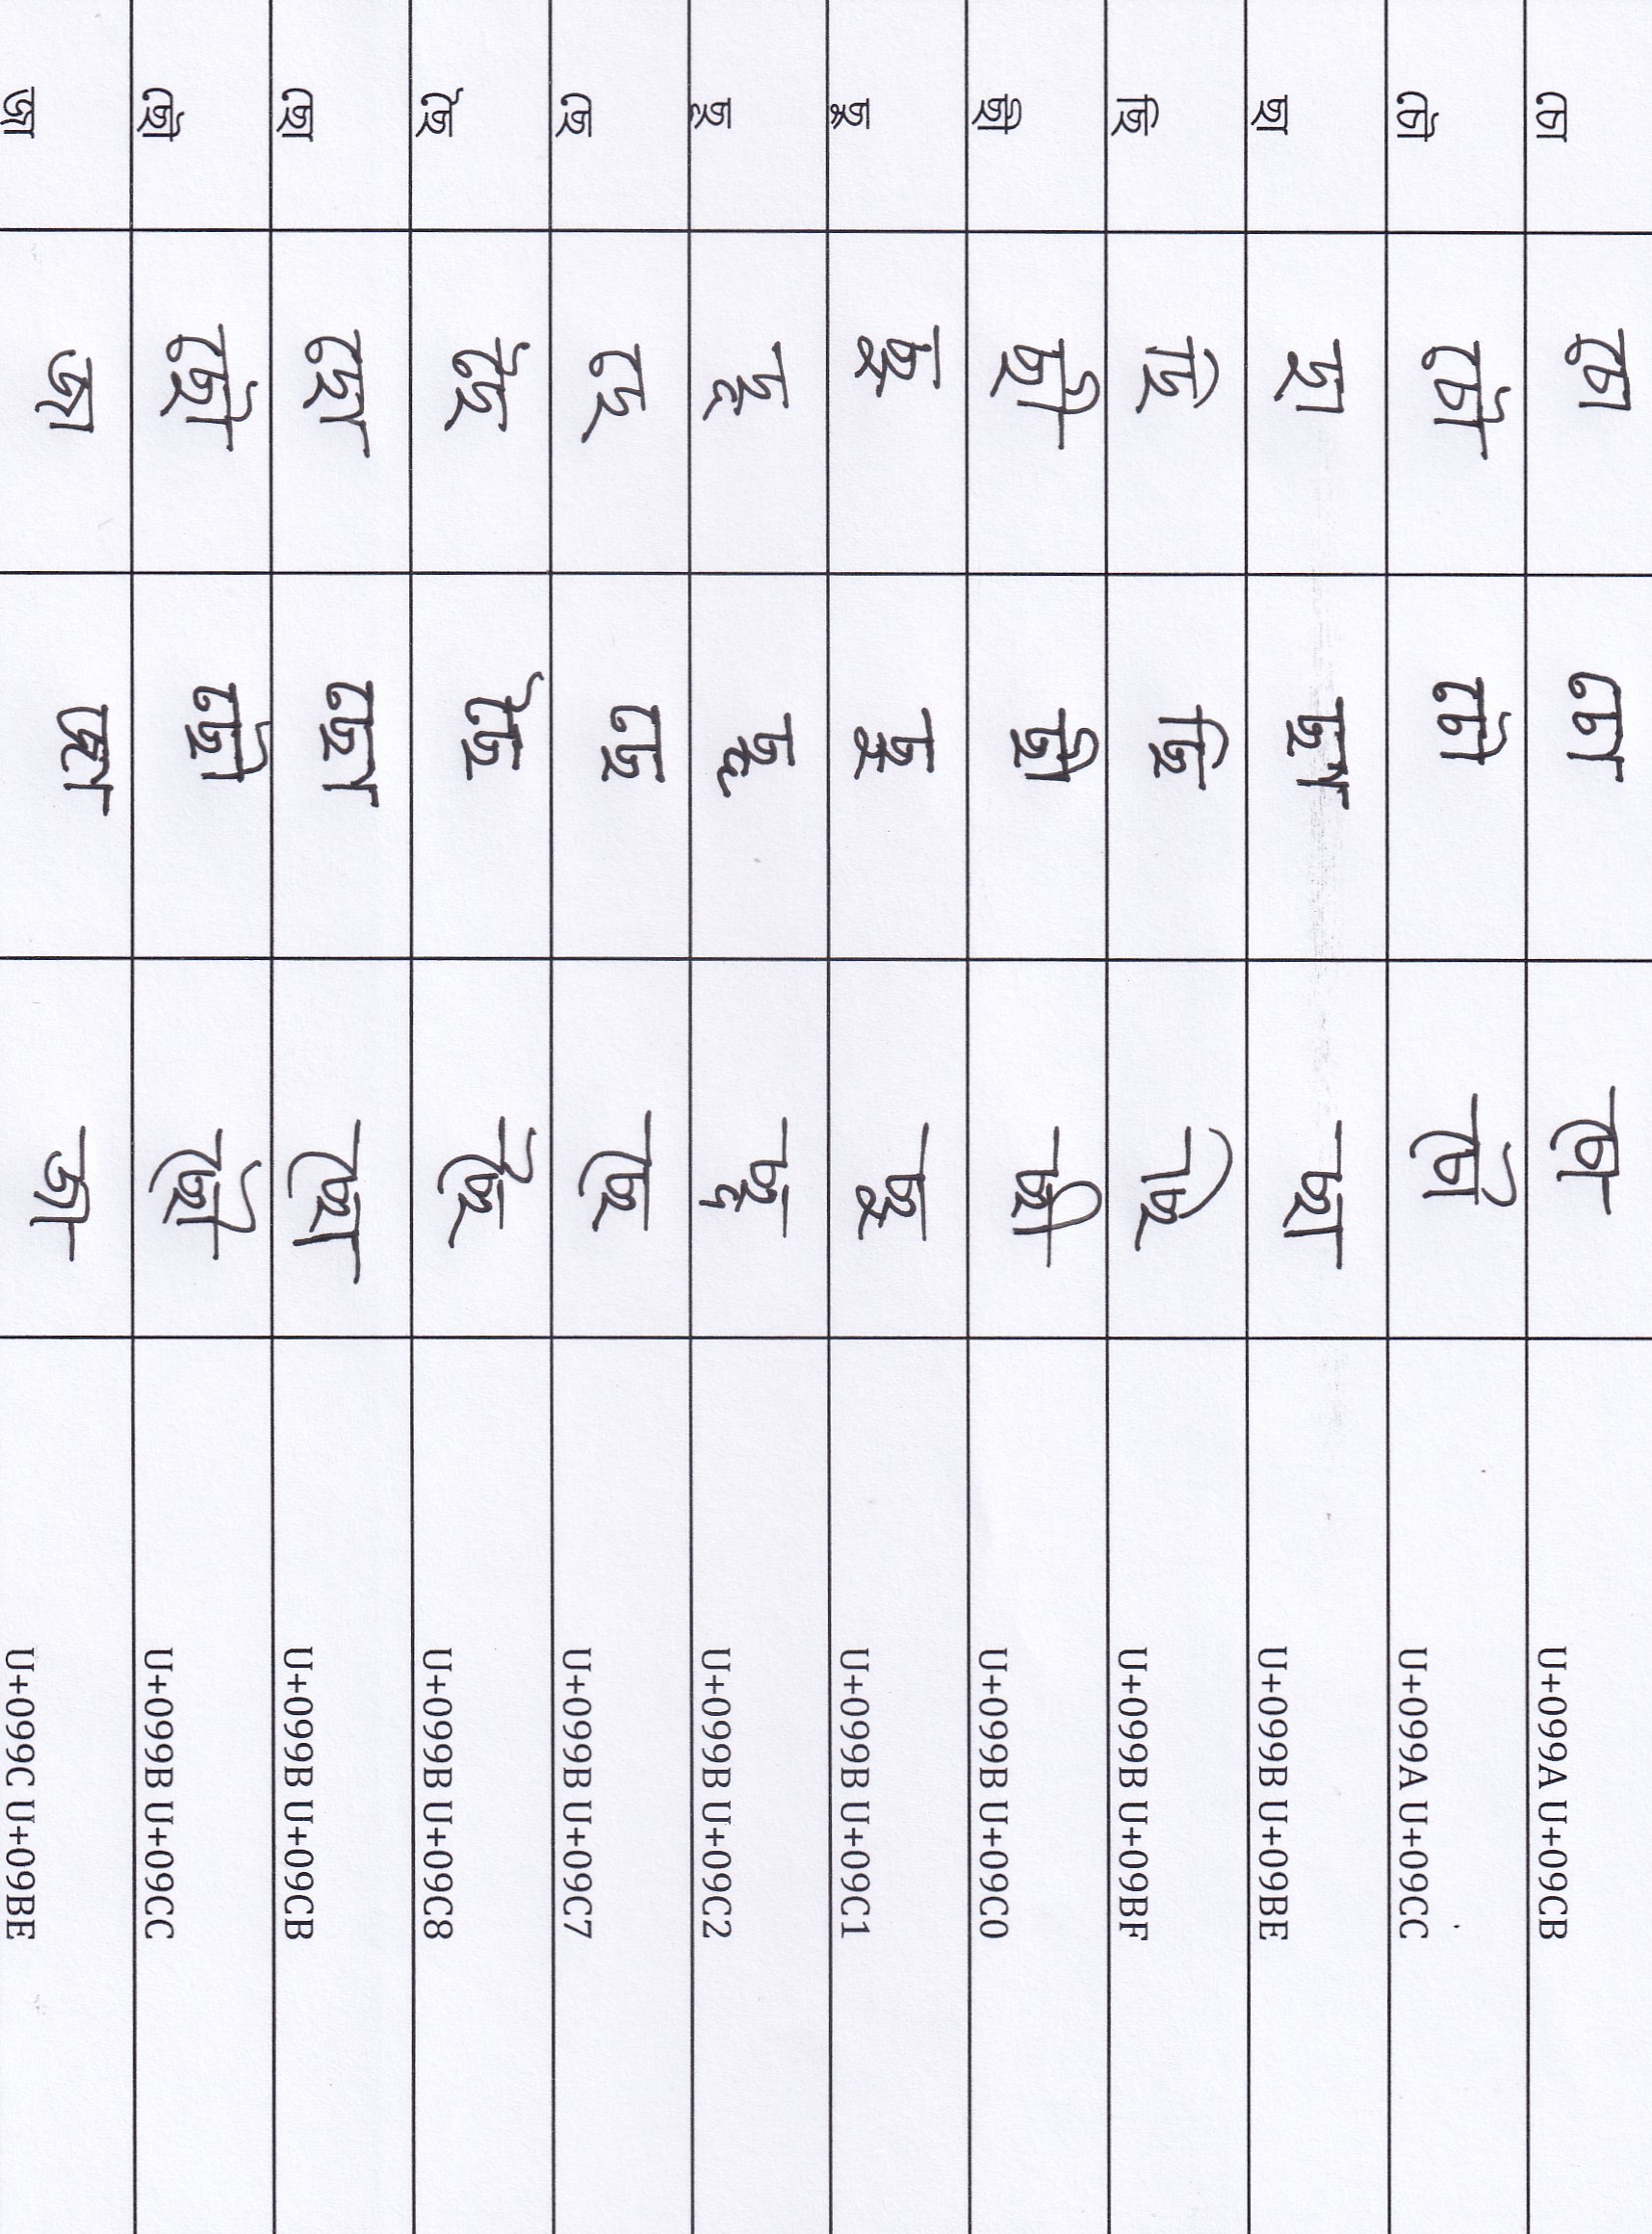 চো চো চো চো U+099A U+09CB
চৌ চৌ চৌ চৌ U+099A U+09CC
ছা ছা ছা ছা U+099B U+09BE
ছি ছি ছি ছি U+099B U+09BF
ছী ছী ছী ছী U+099B U+09C0
ছু ছু ছু ছু U+099B U+09C1
ছূ ছূ ছূ ছূ U+099B U+09C2
ছে ছে ছে ছে U+099B U+09C7
ছৈ ছৈ ছৈ ছৈ U+099B U+09C8
ছো ছো ছো ছো U+099B U+09CB
ছৌ ছৌ ছৌ ছৌ U+099B U+09CC
জা জা জা জা U+099C U+09BE